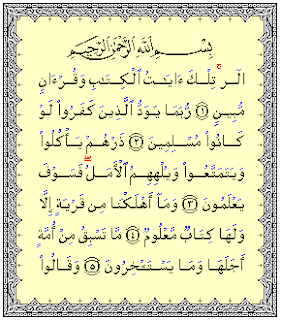 بِسْمِ اللَّهِ الرَّحْمَٰنِ الرَّحِيمِ
الٓر ۚ تِلْكَ ءَايَٰتُ ٱلْكِتَٰبِ وَقُرْءَانٍ
مُّبِينٍ ۝١ رُّبَمَا يَوَدُّ ٱلَّذِينَ كَفَرُوا۟ لَوْ
كَانُوا۟ مُسْلِمِينَ ۝٢ ذَرْهُمْ يَأْكُلُوا۟
وَيَتَمَتَّعُوا۟ وَيُلْهِهِمُ ٱلْأَمَلُ ۖ فَسَوْفَ
يَعْلَمُونَ ۝٣ وَمَآ أَهْلَكْنَا مِن قَرْيَةٍ إِلَّا
وَلَهَا كِتَابٌ مَّعْلُومٌ ۝٤ مَّا تَسْبِقُ مِنْ أُمَّةٍ
أَجَلَهَا وَمَا يَسْتَـْٔخِرُونَ ۝٥ وَقَالُوا۟